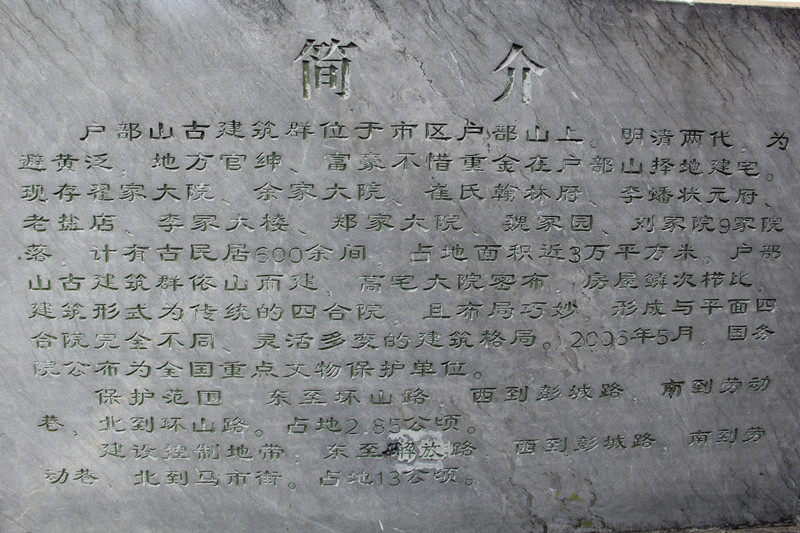 简 介
户部山古建筑群位于市区户部山上。明清两代，为
避黄泛，地方官绅、富豪不惜重金在户部山择地建宅。
现存翟家大院、余家大院、崔氏翰林府、李蟠状元府、
老盐店、李家大楼、郑家大院、魏家园、刘家院9家院
落，计有古民居600余间，占地面积近3万平方米。户部
山古建筑群依山而建，高宅大院密布，房屋鳞次栉比，
建筑形式为传统的四合院，且布局巧妙，形成与平面四
合院完全不同、灵活多变的建筑格局。2006年5月，国务
院公布为全国重点文物保护单位。
保护范围，东至环山路，西到彭城路，南到劳动
巷，北到环山路。占地2.85公顷。
建设控制地带，东至解放路，西到彭城路，南到劳
动巷，北到马市街。占地13公顷。